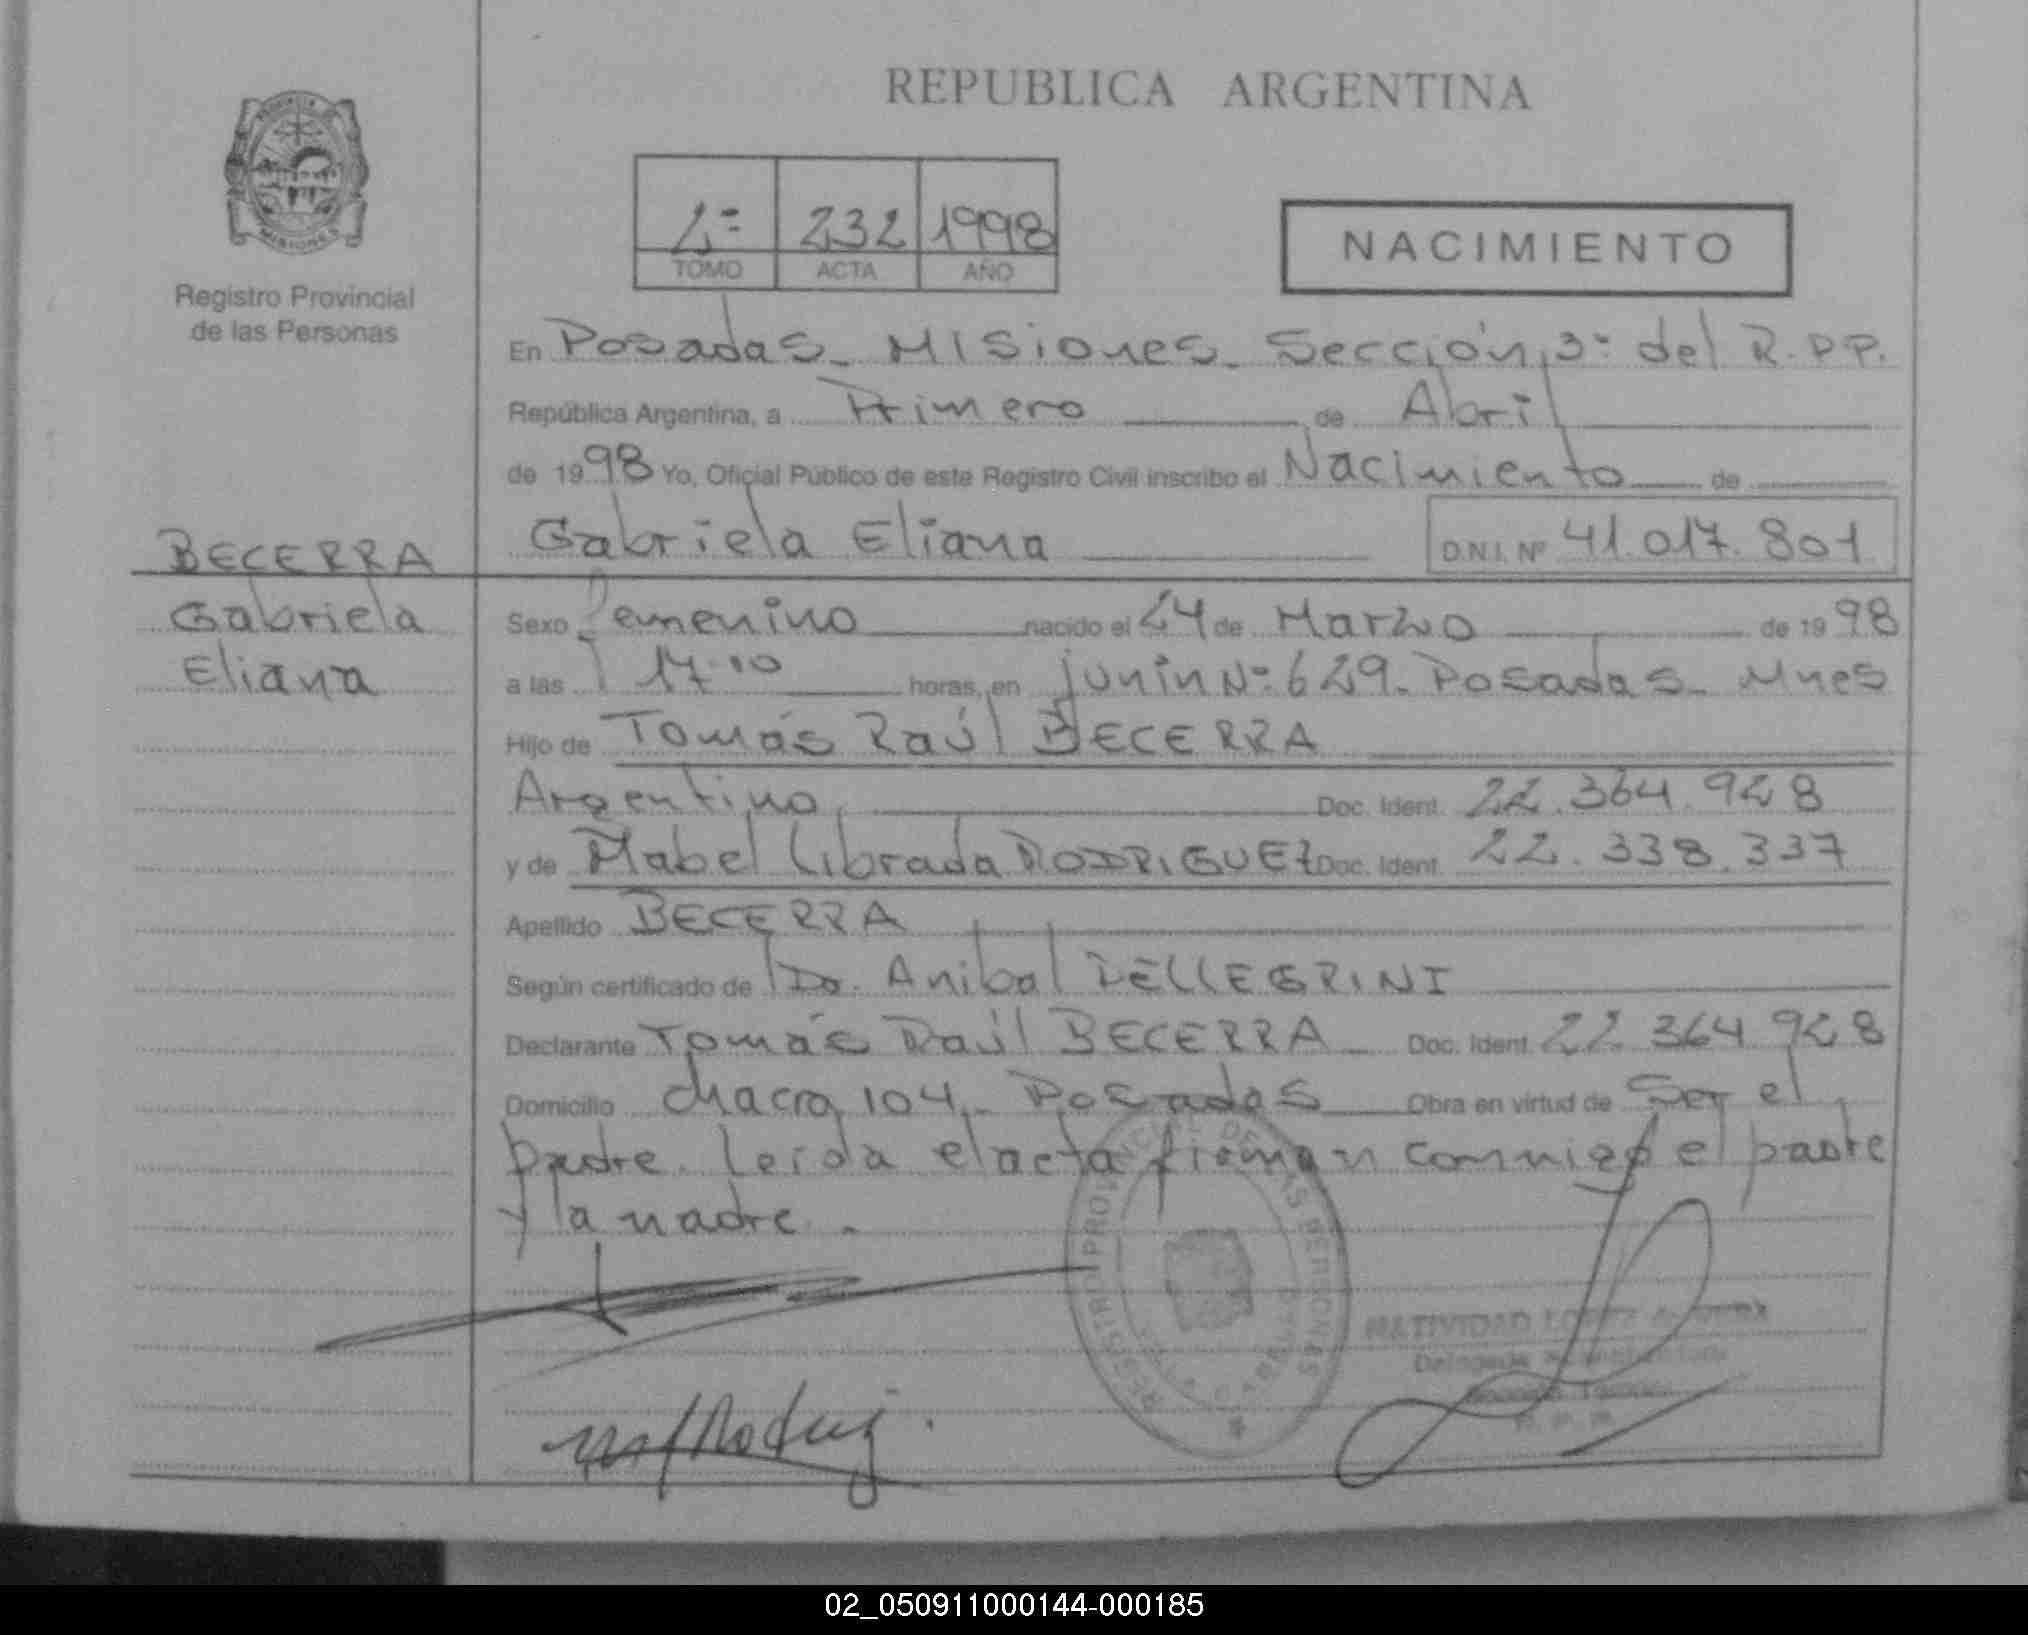 REPUBLICA ARGENTINA
MISIONES
Registro Provincial
de las Personas
2º 232 1998
TOMO ACTA AÑO
NACIMIENTO
En Posadas - Misiones - Sección 3º del R.P.P.
República Argentina, a Primero de Abril
de 1998 Yo, Oficial Público de este Registro Civil inscribo el Nacimiento de
Gabriela Eliana D.N.I. Nº 41.017.801
BECERRA
Gabriela
Eliana
Sexo Femenino nacido el 24 de Marzo de 1998
a las 17.10 horas, en Junín Nº 629. Posadas - Mnes
Hijo de Tomás Raúl BECERRA
Argentino Doc. Ident. 22.364.928
y de Mabel Librada RODRIGUEZ Doc. Ident. 22.338.337
Apellido BECERRA
Según certificado de Dr. Anibal PELLEGRINI
Declarante Tomás Raúl BECERRA Doc. Ident. 22.364.928
Domicilio Chacra 104 - Posadas Obra en virtud de Ser el
padre. Leida el acta firman conmigo el padre
y la madre.
REGISTRO PROVINCIAL DE LAS PERSONAS
NATIVIDAD
Delegada
02_050911000144-000185